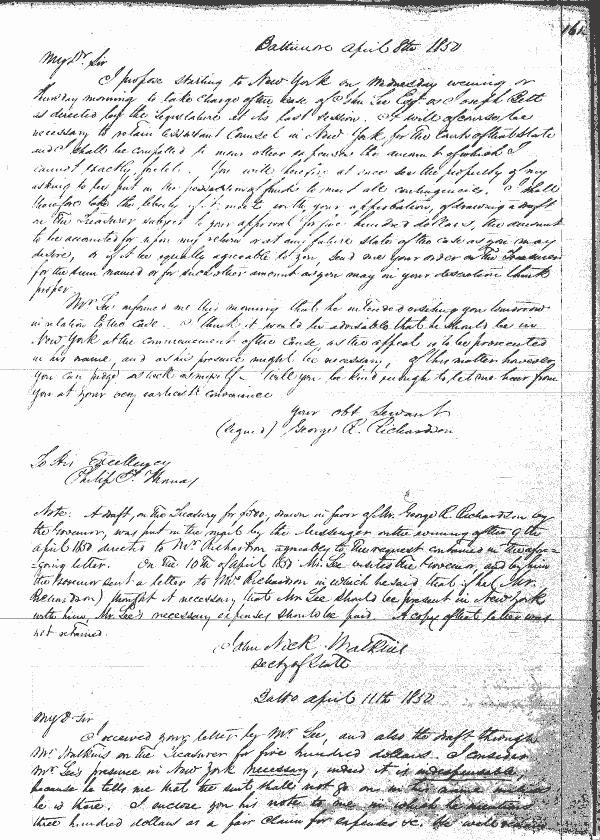 161
Baltimore April 8th 1850
My Dr Sir
I propose starting to New York on Wednesday evening or
Thursday morning to take charge of the case of John Lee Esqr vs Joseph Belt
as directed by the Legislature at its last session. I will of course be
necessary to retain assistant Counsel in New York, for the Courts of that State
and I shall be compelled to incur other expenses the amount of which I
cannot exactly, predict. You will therefore at once see the propriety of my
asking to be put in the possession of funds to meet all contingencies. I shall
therefore take the liberty if it meets with your approbation, of drawing a draft
on the Treasurer subject to your approval for five hundred dollars, the amount
to be accounted for upon my return or at any future state of the case as you may
desire, or if it be equally agreeable to you, send me your order on the Treasurer
for the sum named or for such other amount as you may in your discretion think
proper
Mr Lee informed me this morning that he intended visiting you tomorrow
in relation to the case. I think it would be advisable that he should be in
New York at the commencement of the Cause, as the appeal is to be prosecuted
in his name, and as his presence might be necessary, of this matter however,
you can judge as well as myself - Will you be kind enough to let me hear from
you at your very earliest convenience
Your obt Servant
(Signed) George R. Richardson
To His Excellency
Philip F. Thomas
Note. A draft, on the Treasury for $500, drawn in favor of Mr. George R. Richardson by
the Governor, was put in the mail by the Messenger on the evening of the 9 of
April 1850 directed to Mr Richardson agreeably to the request contained in the afore-
=going letter. On the 10th of April 1850 Mr. Lee visited the Governor, and by him
the Governor sent a letter to Mr Richardson in which he said that if he (Mr.
Richardson) thought it necessary that Mr Lee should be present in New York
with him, Mr. Lee's necessary expenses should be paid. A copy of that letter was
not retained.
John Nick. Watkins
Secty of State
Balto April 11th 1850
My D. Sir
I received your letter by Mr Lee, and also the draft through
Mr Watkins on the Treasurer for five hundred dollars. I consider
Mr Lee's presence in New York necessary, indeed it is indispensable,
because he tells me that the suit shall not go on in his name unless
he is there. I inclose you his note to me in which he mentions
three hundred dollars as a fair claim for expenses &c. He will